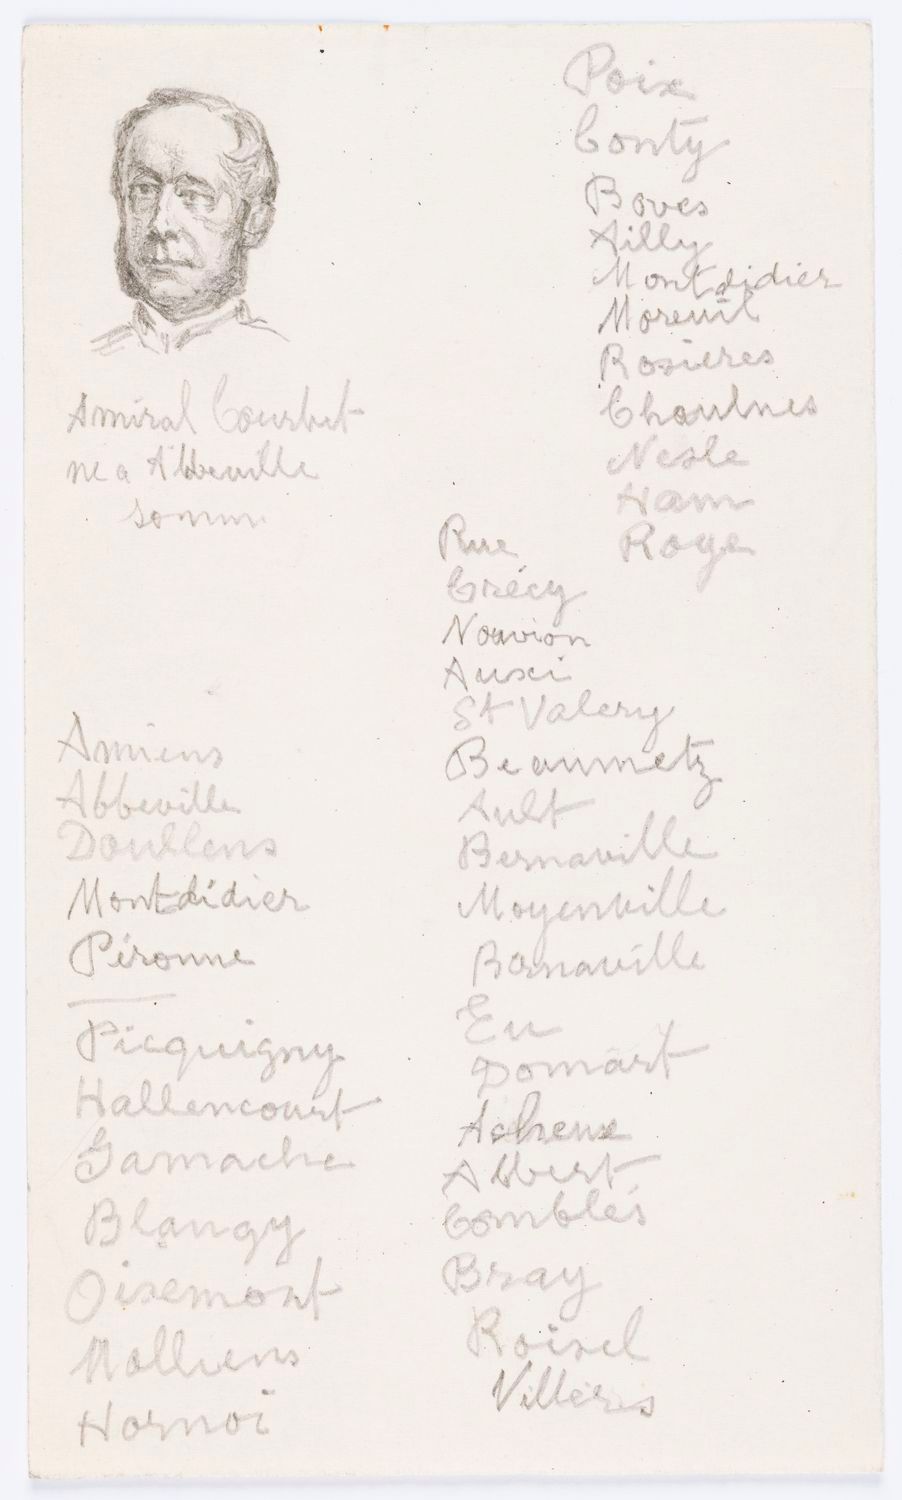 Amiral Courbet
né a Abbeville
somm
Amiens
Abbeville
Doullens
Montdidier
Péronne
Picquigny
Hallencourt
Gamache
Blangy
Oisemont
Molliens
Hornoi
Rue
Crécy
Nouvion
Auxi
St Valery
Beaumetz
Ault
Bernaville
Moyenville
Bernaville
Eu
Domart
Acheux
Albert
Comblés
Bray
Roisel
Villéres
Poix
Conty
Boves
Ailly
Montdidier
Moreuil
Rosieres
Chaulnes
Nesle
Ham
Roye